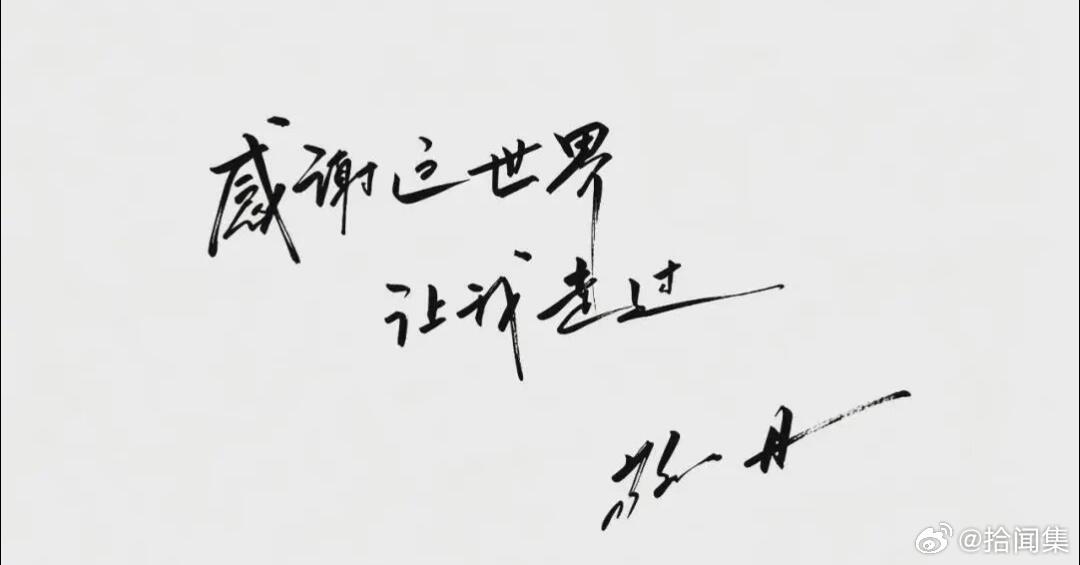 感谢这世界
让我走过
敬一丹
@拾闻集